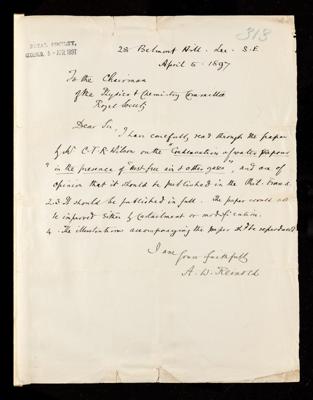 313
ROYAL SOCIETY,
RECEIVED 5 - APR. 1897
28 Belmont Hill. Lee. S.E.
April 5. 1897
To the Chairman
of the Physics & Chemistry Committee
Royal Society
Dear Sir,
I have carefully read through the paper
by Mr C.T.R. Wilson on the "Condensation of water vapour
in the presence of dust-free air & other gases", and am of
opinion that it should be published in the Phil. Trans.
2.3. It should be published in full. The paper would not
be improved either by curtailment or modification.
4. The illustrations accompanying the paper shd be reproduced
I am
Yours faithfully
A. W. Reinold